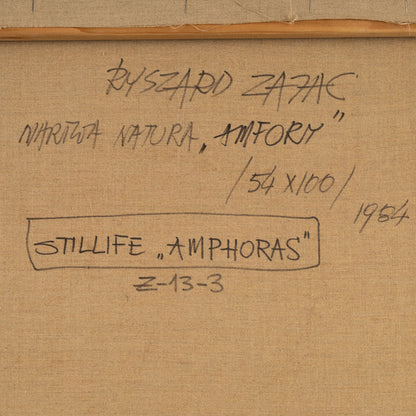 RYSZARD ZAJĄC
MARTWA NATURA „AMFORY"
/54 X 100/
1984
STILLIFE „AMPHORAS"
Z-13-3